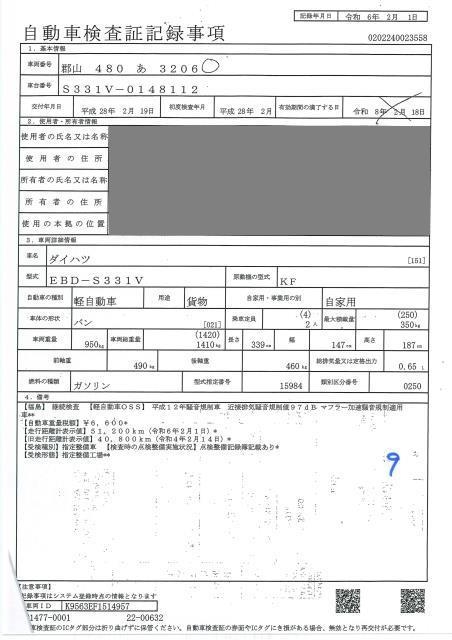 記録年月日 令和 6年 2月 1日
自動車検査証記録事項
0202240023558
1. 基本情報
車両番号 郡山 480 あ 3206
車台番号 S331V-0148112
交付年月日 平成 28年 2月 19日 初度検査年月 平成 28年 2月 有効期間の満了する日 令和 8年 2月 18日
2. 使用者・所有者情報
使用者の氏名又は名称
使用者の住所
所有者の氏名又は名称
所有者の住所
使用の本拠の位置
3. 車両詳細情報
車名 ダイハツ [151]
型式 EBD-S331V 原動機の型式 KF
自動車の種別 軽自動車 用途 貨物 自家用・事業用の別 自家用
車体の形状 バン [021] 乗車定員 (4) 2人 最大積載量 (250) 350kg
車両重量 950kg 車両総重量 (1420) 1410kg 長さ 339cm 幅 147cm 高さ 187cm
前軸重 490kg 後軸重 460kg 総排気量又は定格出力 0.65 L
燃料の種類 ガソリン 型式指定番号 15984 類別区分番号 0250
4. 備考
【福島】 継続検査 【軽自動車OSS】 平成12年騒音規制車 近接排気騒音規制値97dB マフラー加速騒音規制適用
車**
【自動車重量税額】¥6,600*
【走行距離計表示値】51,200km(令和6年2月1日)*
【旧走行距離計表示値】40,800km(令和4年2月14日)*
【受検種別】指定整備車 【検査時の点検整備実施状況】点検整備記録簿記載あり*
【受検形態】指定整備工場**
9
【注意事項】
記録事項はシステム登録時点の情報となります
車両ID K9563EF1514957
1477-0001 22-00632
車検査証のICタグ部分は折り曲げずに保管ください。自動車検査証の券面やICタグにき損がある場合、無効となり再交付が必要です。